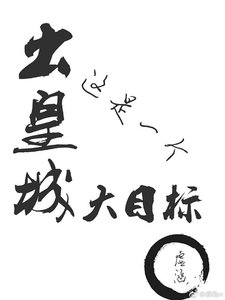 出皇城
这是一个
大目标
虚涵